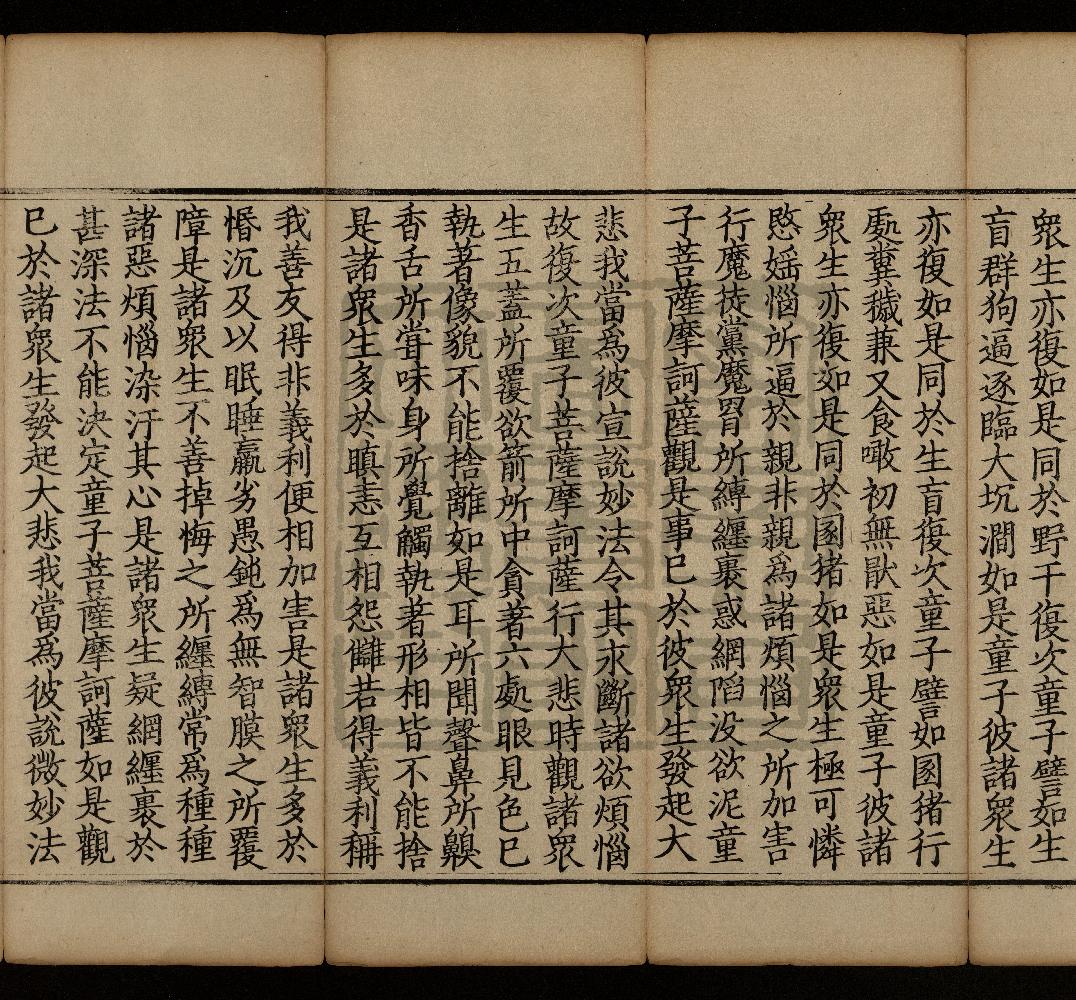 衆生亦復如是同於野干復次童子譬如生
盲群狗逼逐臨大坑澗如是童子彼諸衆生
亦復如是同於生盲復次童子譬如圂猪行
處糞穢兼又食噉初無猒惡如是童子彼諸
衆生亦復如是同於圂猪如是衆生極可憐
愍婬惱所逼於親非親為諸煩惱之所加害
行魔徒黨魔罥所縛纏裹惑網陷没欲泥童
子菩薩摩訶薩觀是事已於彼衆生發起大
悲我當為彼宣說妙法令其求斷諸欲煩惱
故復次童子菩薩摩訶薩行大悲時觀諸衆
生五蓋所覆欲箭所中貪著六處眼見色已
執著像貌不能捨離如是耳所聞聲鼻所齅
香舌所甞味身所覺觸執著形相皆不能捨
是諸衆生多於瞋恚互相怨讎若得義利稱
我善友得非義利便相加害是諸衆生多於
惛沉及以眠睡羸劣愚鈍為無智膜之所覆
障是諸衆生不善掉悔之所纏縛常為種種
諸惡煩惱染汙其心是諸衆生疑網纏裹於
甚深法不能決定童子菩薩摩訶薩如是觀
已於諸衆生發起大悲我當為彼說微妙法